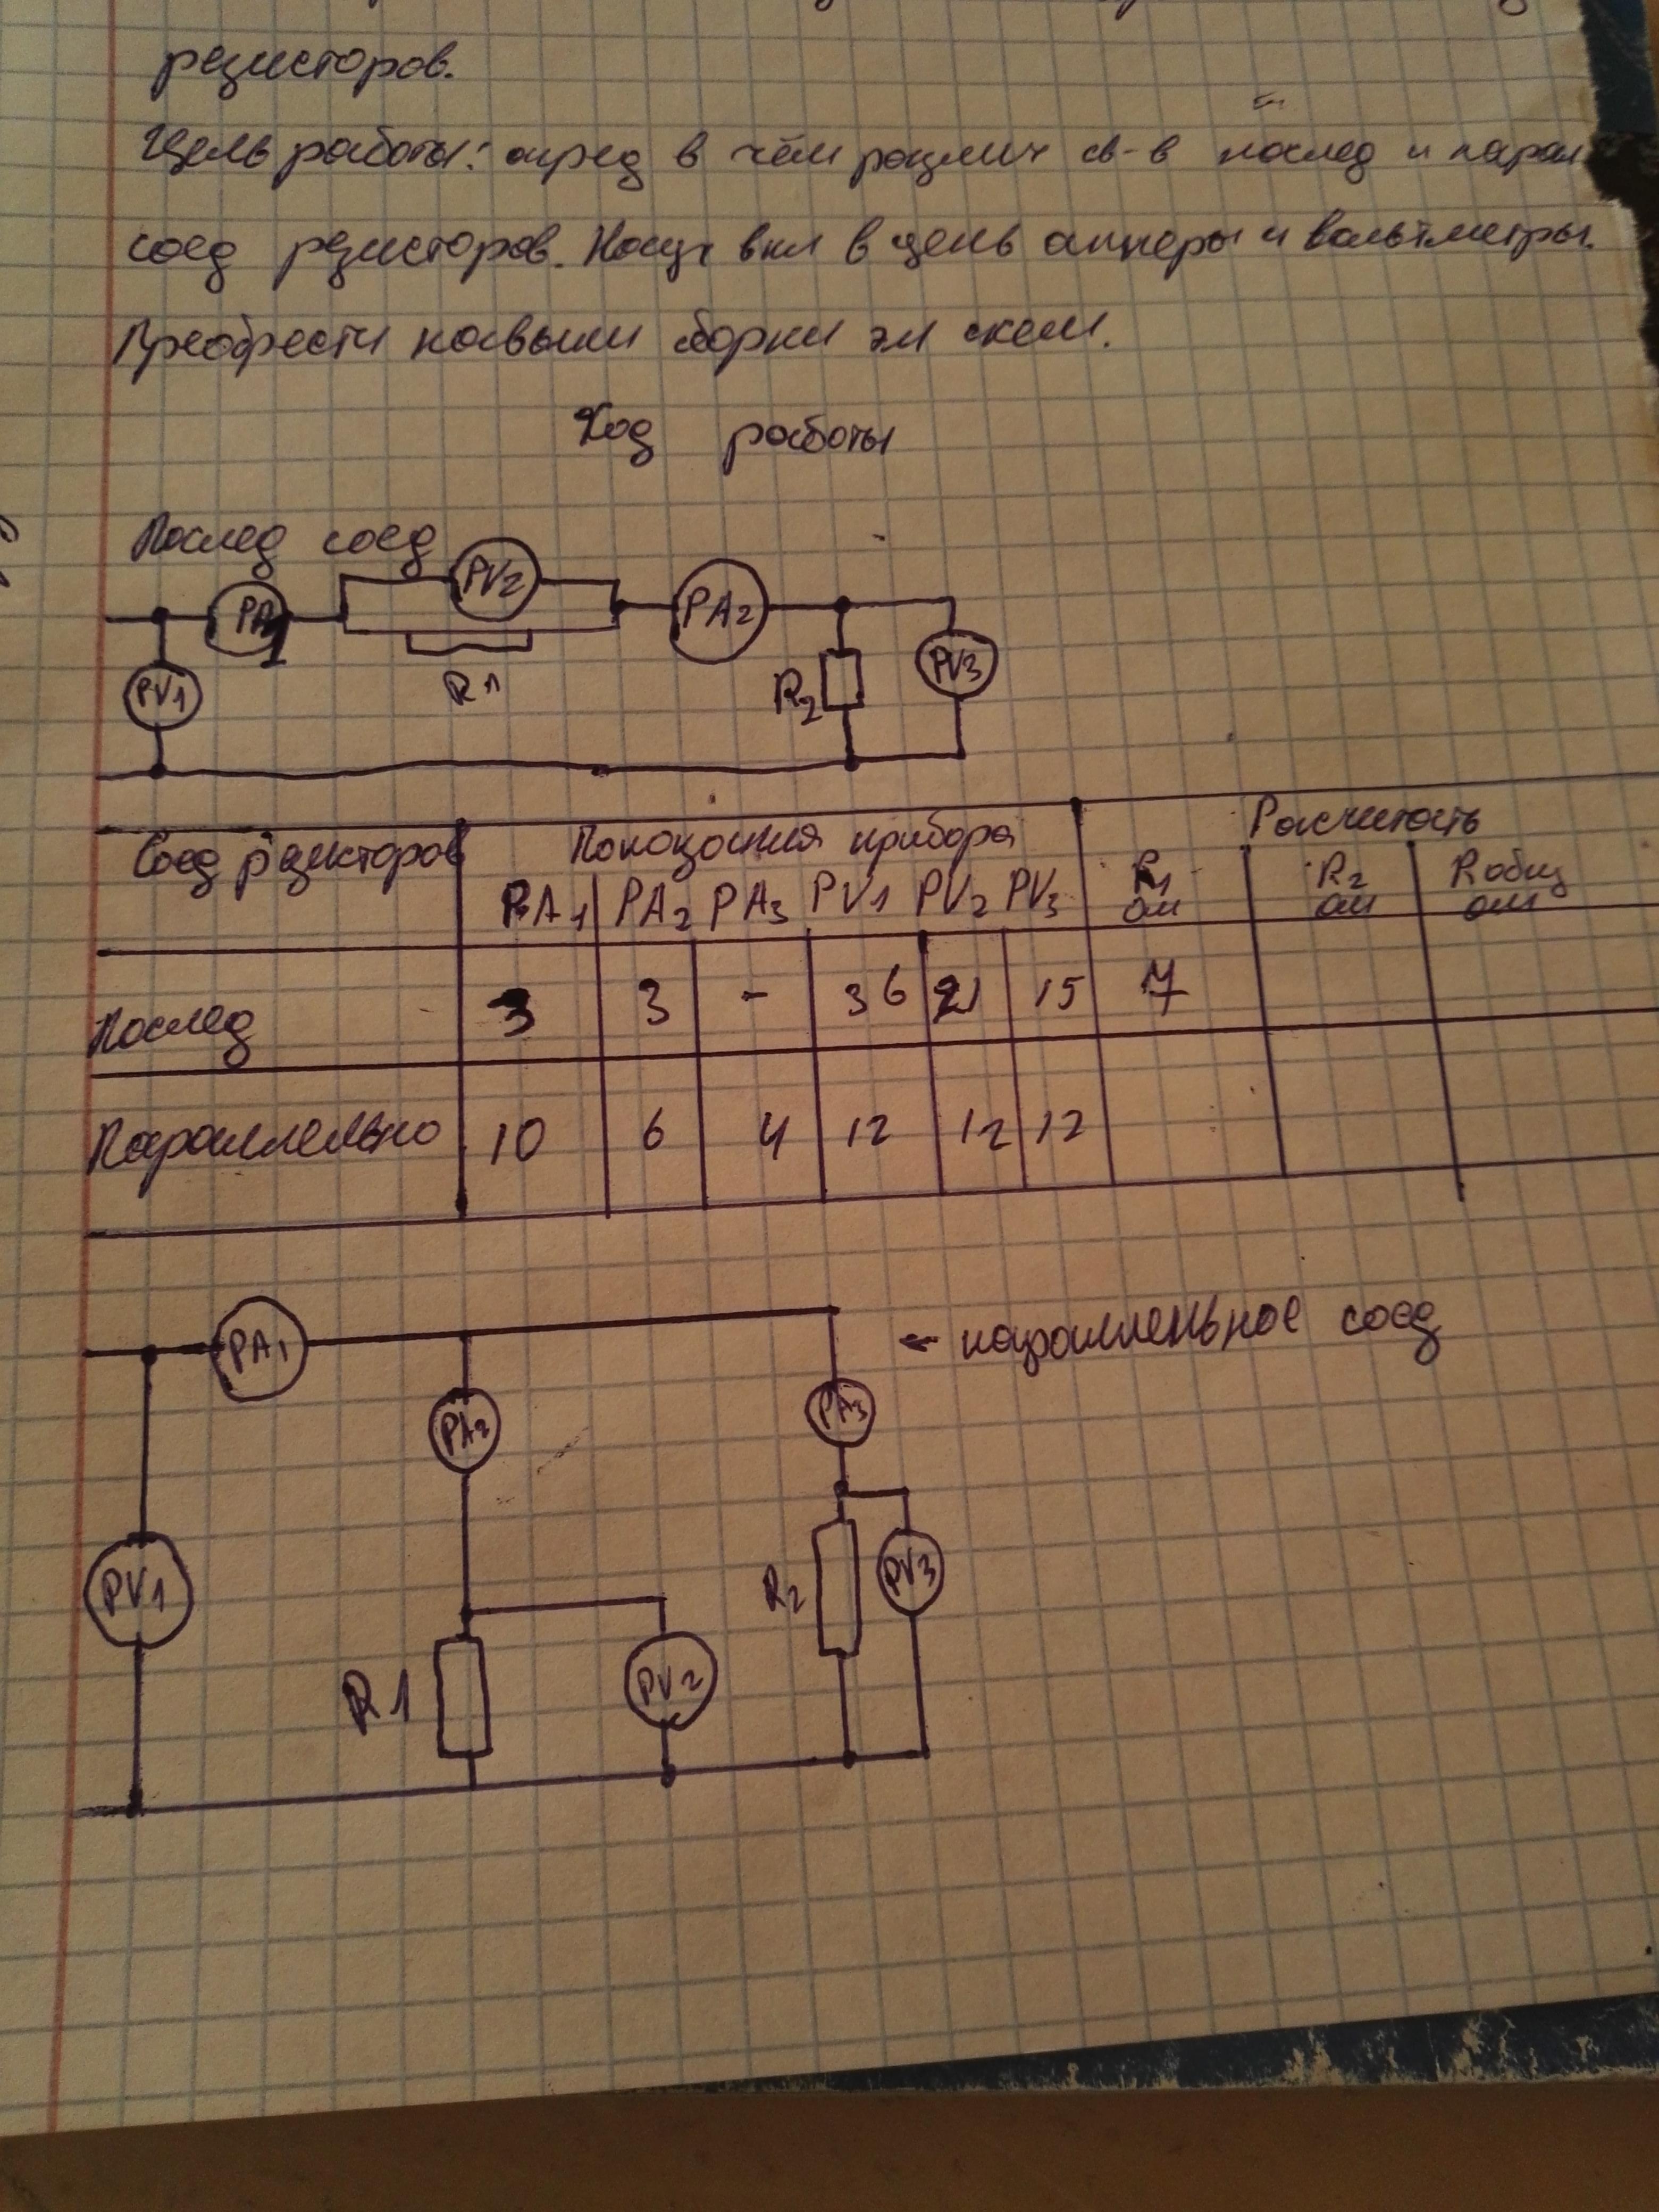 резисторов.
Цель работы: опред в чём различ св-в послед и парал
соед резисторов. Науч вкл в цепь амперы и вольтметры.
Преобрести навыки сборки эл схем.
Ход работы
Послед соед
PA1 PV2 PA2
PV1 R1 R2 PV3
Соед резисторов Показания прибора Расчитать
PA1 PA2 PA3 PV1 PV2 PV3 R1 ом R2 ом Rобщ ом
Послед 3 3 - 36 21 15 7
Параллельно 10 6 4 12 12 12
PA1 ← параллельное соед
PA2 PA3
PV1 R2 PV3
R1 PV2